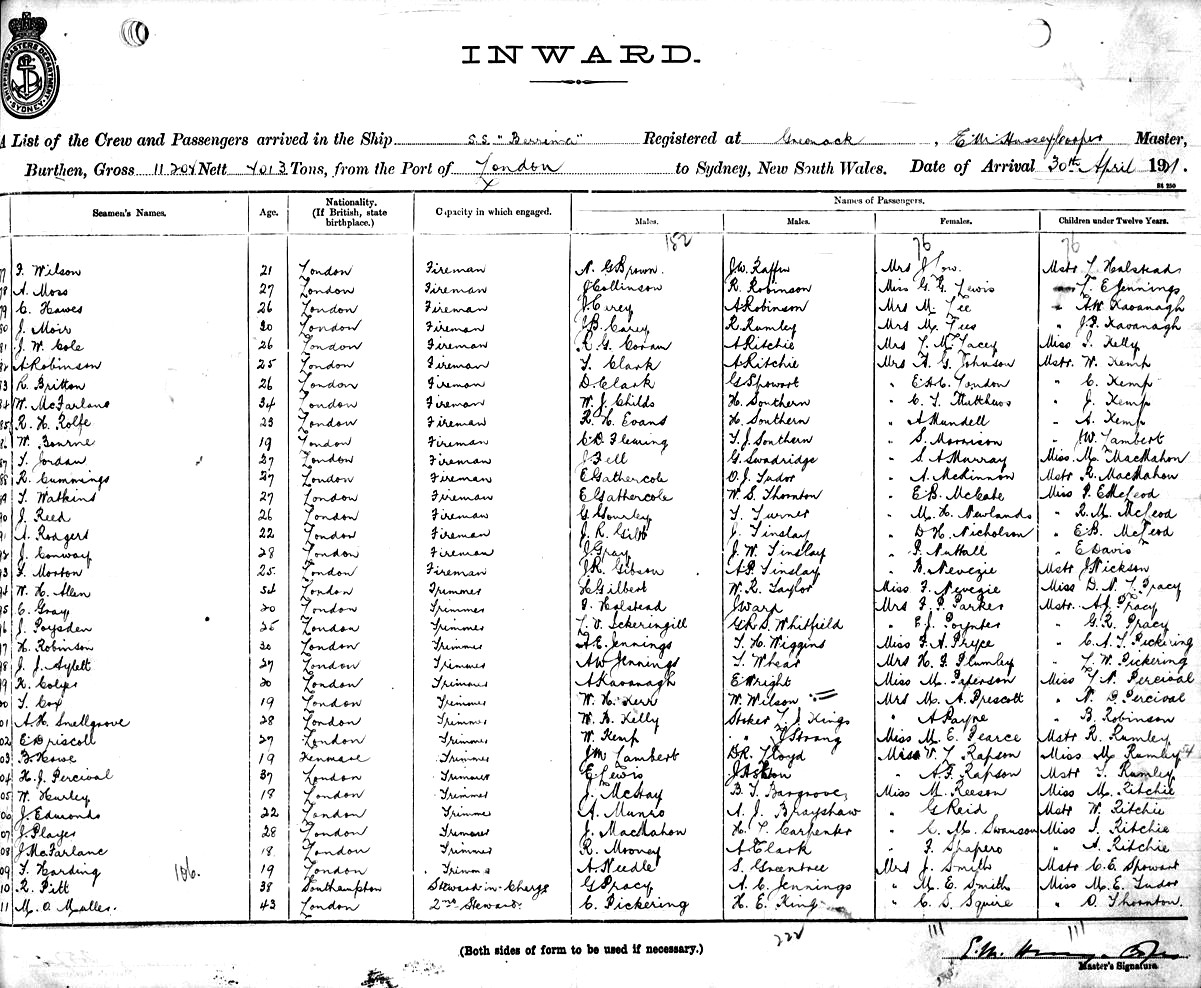 SHIPPING MASTERS DEPARTMENT SYDNEY
INWARD.
A List of the Crew and Passengers arrived in the Ship S.S. "Berrima" Registered at Greenock, E. M. Hussey Cooper Master,
Burthen, Gross 11204 Nett 4013 Tons, from the Port of London to Sydney, New South Wales. Date of Arrival 30th April 1921.
X
Seamen's Names. Age. Nationality. (If British, state birthplace.) Capacity in which engaged. Names of Passengers.
Males. Males. Females. Children under Twelve Years.
182 76 76
77 F. Wilson 21 London Fireman N. G. Brown. J. W. Raffin Mrs J. Low. Mstr T. Halstead
78 A. Moss 27 London Fireman J Collinson R. Robinson Miss G. G. Lewis " T. E Jennings
79 C. Hawes 26 London Fireman J. Cirey A Robinson Mrs M. Lee " A. W. Kavanagh
80 J. Moir 20 London Fireman J. B. Carey R. Rumley Mrs M. Lees " J. P. Kavanagh
81 J. W. Cole 26 London Fireman R. G. Conan A Ritchie Mrs T. M. Lacey Miss I. Kelly
82 A Robinson 25 London Fireman T. Clark A Ritchie Mrs A. G. Johnson Mstr. W. Kemp
83 R. Britton 26 London Fireman D Clark G Spowart " E. A. C. London " C. Kemp
84 W. McFarlane 34 London Fireman W. J Childs H. Southern " C. T. Matthews " J. Kemp
85 R. H. Rolfe 23 London Fireman R. H. Evans H. Southern " A Mundell " A. Kemp
86 W. Bourne 19 London Fireman C. D. Fleming T. J. Southern " S. Morrison " J W. Lambert
87 T. Jordan 27 London Fireman J. Fell G. Swadridge " S. A Murray Miss. M. MacMahon
88 R. Cummings 27 London Fireman E Gathercole O. J. Tudor " A. McKinnon Mstr R. MacMahon
89 T. Watkins 27 London Fireman E Gathercole W. S. Thornton " E. B. McCabe Miss I. E McLeod
90 J. Reed 26 London Fireman G. Gourley T. Turner " M. H. Newlands " R. M. McLeod
91 A. Rodgers 22 London Fireman J. R. Gibb J. Tinslay " D H. Nicholson " E. B. McLeod
92 J. Conway 28 London Fireman J. Gray J. W. Tinslay " P. Nuttall " E Davis
93 F. Morton 25. London Fireman J. R. Gibson A. P. Tinslay " B. Nevezie Mstr J Nickson
94 W. H. Allen 34 London Trimmer H Gilbert W. R. Taylor Miss F. Nevezie Miss D. N. T. Pracy
95 C. Gray 20 London Trimmer F. Halstead J Ward Mrs F. P. Parker Mstr. A. J. Pracy
96 J. Poysden 25 London Trimmer T. V. Ickeringill G. R. S. Whitfield " E. J. Poynter " G. R. Pracy
97 H. Robinson 30 London Trimmer A. E. Jennings T. H. Wiggins Miss F. A. Pryce " C. A. T. Pickering
98 J. J. Aylett 27 London Trimmer A W Jennings T. Whear Mrs H. G. Plumley " T. W. Pickering
99 R. Coles 20 London Trimmer A Kavanagh E Wright Miss M. Peterson Miss T. N. Percival
00 T. Cox 19 London Trimmer W. H. Kerr W. Wilson Mrs M. A. Prescott " N. D. Percival
01 A. H. Snellgrove 28 London Trimmer W. A. Kelly Stoker T. J. Kings " A Payne " B. Robinson
02 E Driscoll 27 London Trimmer W. Kemp " J Strang Miss M. E. Pearce Mstr R. Rumley
03 B. Howe 19 Kenmare Trimmer J. M. Lambert D. R. Lloyd Miss V. L. Rapson Miss M. Rumley
04 H. J. Percival 37 London Trimmer E Lewis J Ashton " A. F. Rapson Mstr T. Rumley
05 W. Hurley 18 London Trimmer J. McStay B. T. Bargrove, Miss M. Reeson Miss M. Ritchie
06 J. Edmonds 22 London Trimmer A. Munro A. J. Brayshaw " G Reid Mstr W. Ritchie
07 J. Player 28 London Trimmer J. MacMahon H. T. Carpenter " C. M. Swanson Miss I. Ritchie
08 J McFarlane 18 London Trimmer R. Mooney A Clark " F. Shapero " A. Ritchie
09 T. Harding 106. 19 London Trimmer A. Needle S. Greentree Mrs J. Smith Mstr C. E. Spowart
10 R. Pitt 38 Southampton Steward in Charge G Pracy A. C. Jennings " M. E. Smith Miss M. E. Tudor
11 M. O Malley. 43 London 2nd Steward. C. Pickering H. E. King " C. S. Squire " O. Thornton
222 111 111
(Both sides of form to be used if necessary.)
E. M. Hussey-Cooper
Master's Signature.